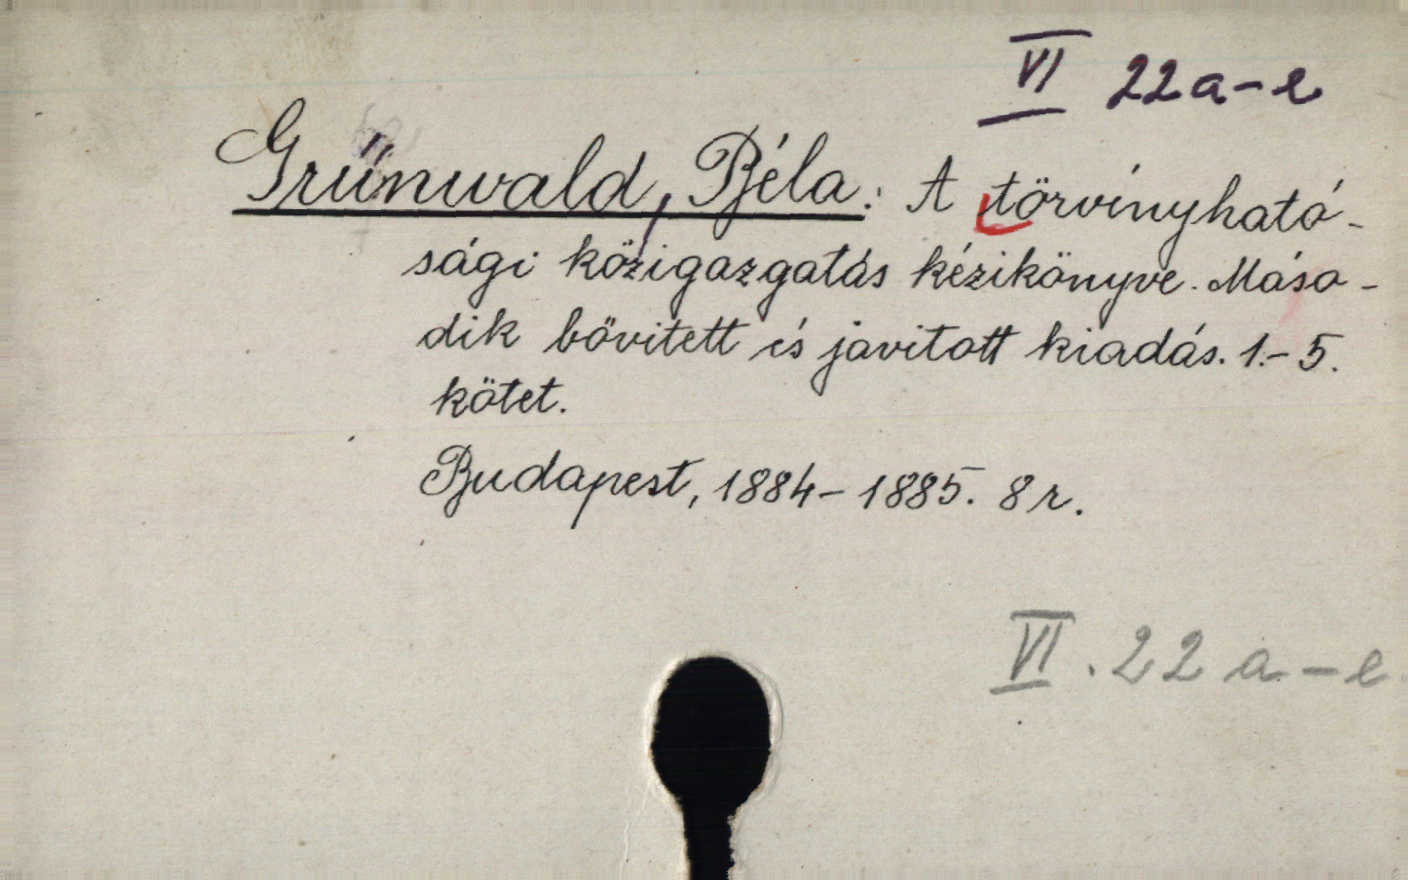 VI 22a-e
Grünwald, Béla: A törvényható-
sági közigazgatás kézikönyve. Máso-
dik bővitett és javitott kiadás. 1.-5.
kötet.
Budapest, 1884-1885. 8 r.
VI. 22 a-e